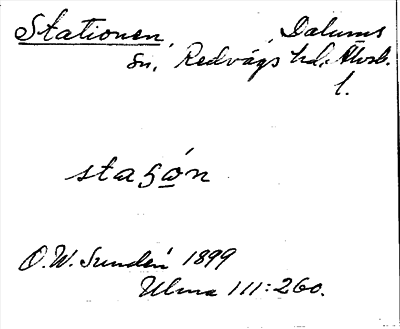 Stationen, Dalums
sn, Redvägs hd, Älvsb.
l.
staʃo̲n
O.W. Sundén 1899
Ulma 111:260.